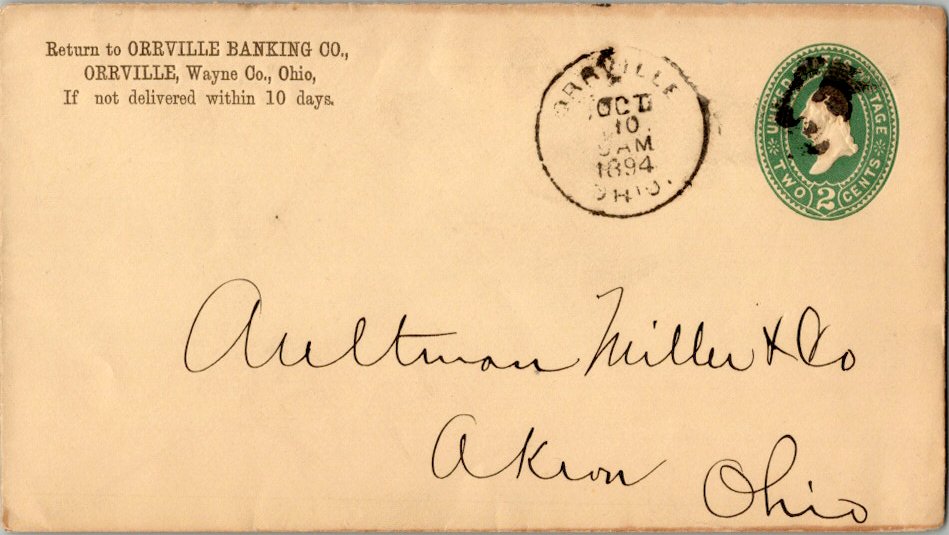 Return to ORRVILLE BANKING CO.,
ORRVILLE, Wayne Co., Ohio,
If not delivered within 10 days.
ORRVILLE
OCT
10
AM
1894
OHIO.
UNITED STATES POSTAGE
TWO 2 CENTS
Aultman Miller & Co
Akron Ohio